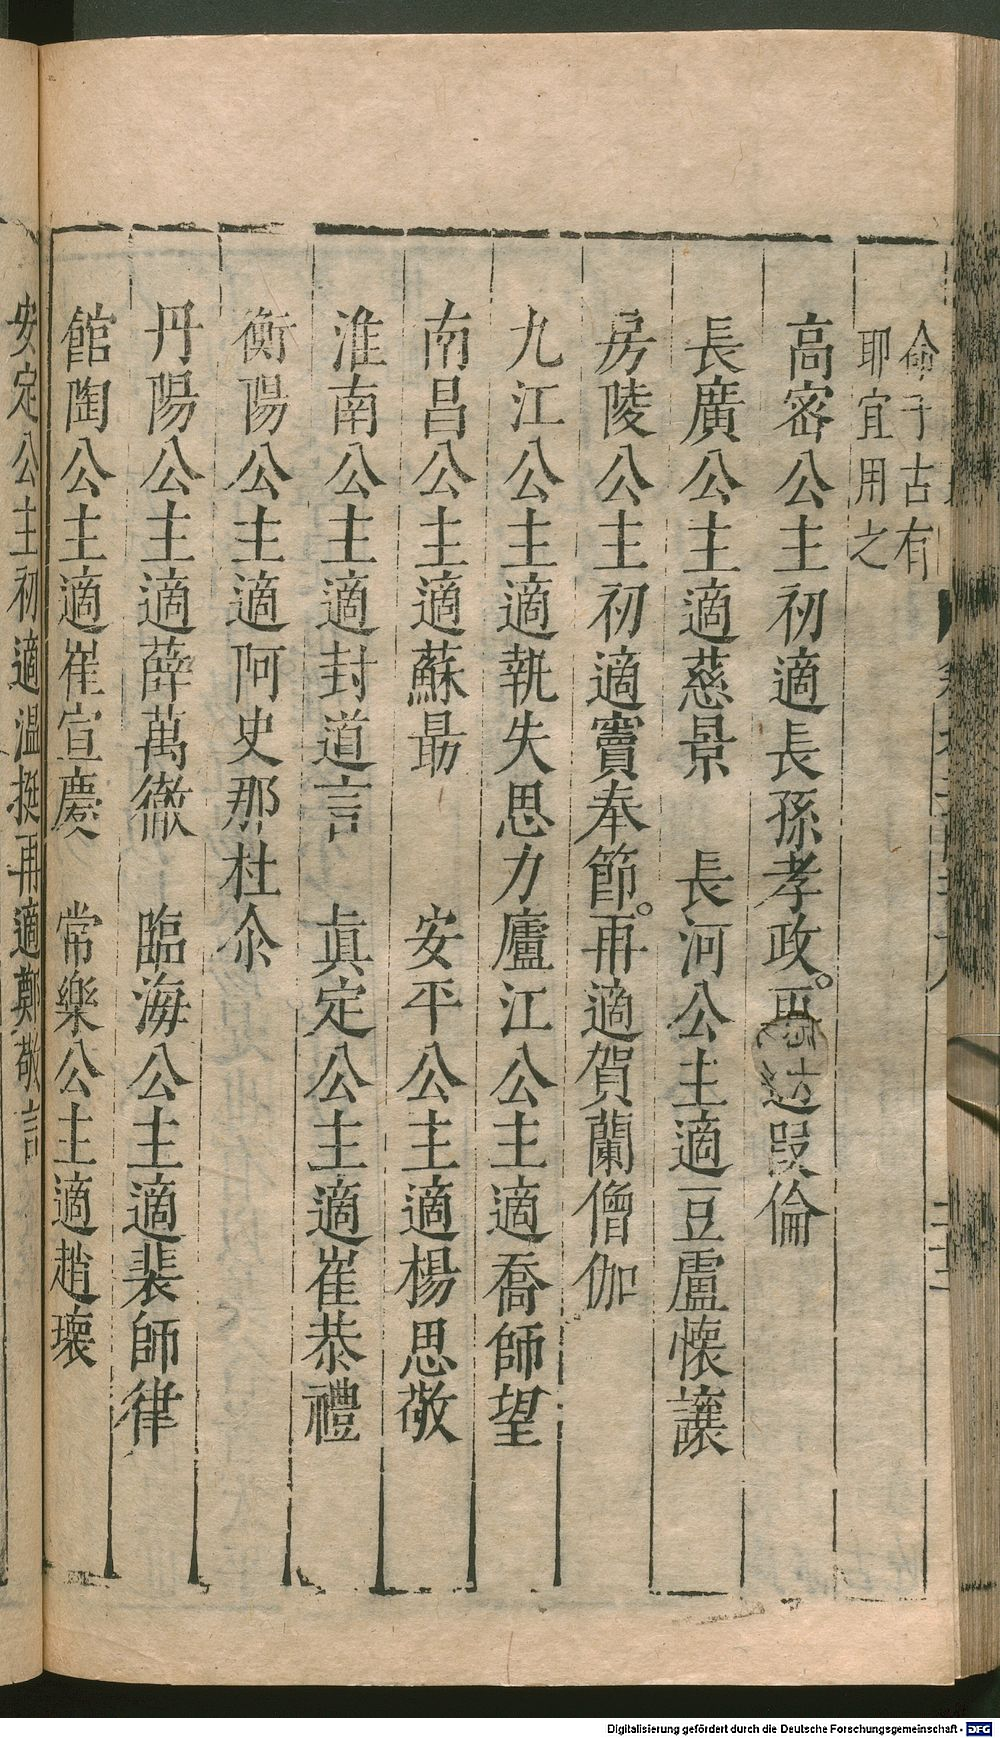 命子古有
耶宜用之
高密公主初適長孫孝政。再適段倫
長廣公主適慈景　長河公主適豆盧懷讓
房陵公主初適竇奉節。再適賀蘭僧伽
九江公主適執失思力廬江公主適喬師望
南昌公主適蘇勗　安平公主適楊思敬
淮南公主適封道言　眞定公主適崔恭禮
衡陽公主適阿史那杜尒
丹陽公主適薛萬徹　臨海公主適裴師律
館陶公主適崔宣慶　常樂公主適趙瓌
安定公主初適温挺再適鄭敬言
Digitalisierung gefördert durch die Deutsche Forschungsgemeinschaft - DFG